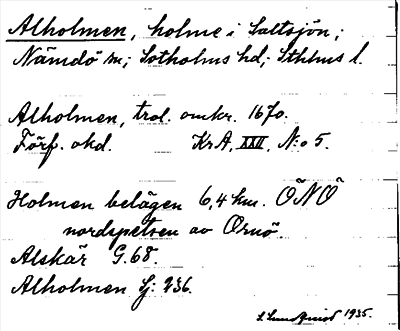 Alholmen, holme i Saltsjön;
Nämdö sn; Sotholms hd; Sthlms l.
Alholmen, trol. omkr. 1670.
Förf. okd. KrA, XXII, N:o 5.
Holmen belägen 6,4 km. ÖNÖ
nordspetsen av Ornö.
Alskär G.68.
Alholmen Sj: 236.
S. Lundquist 1935.